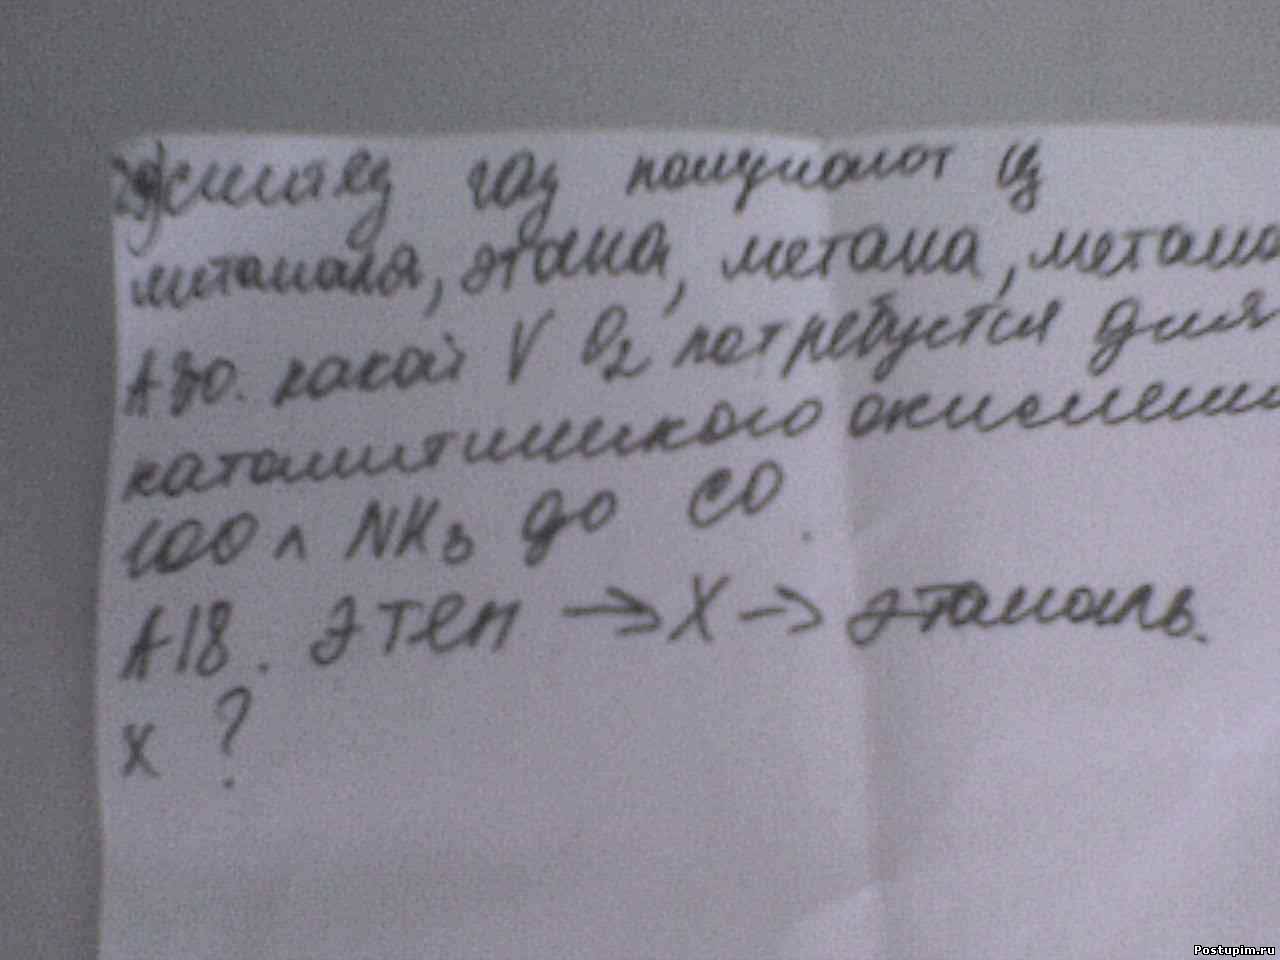 газ получают из
метаналя, этана, метана, метано
А30. какой V O2 потребуется для
каталитического окислени
100 л NH3 до CO.
А18. этен → X → этаналь.
X ?
Postupim.ru